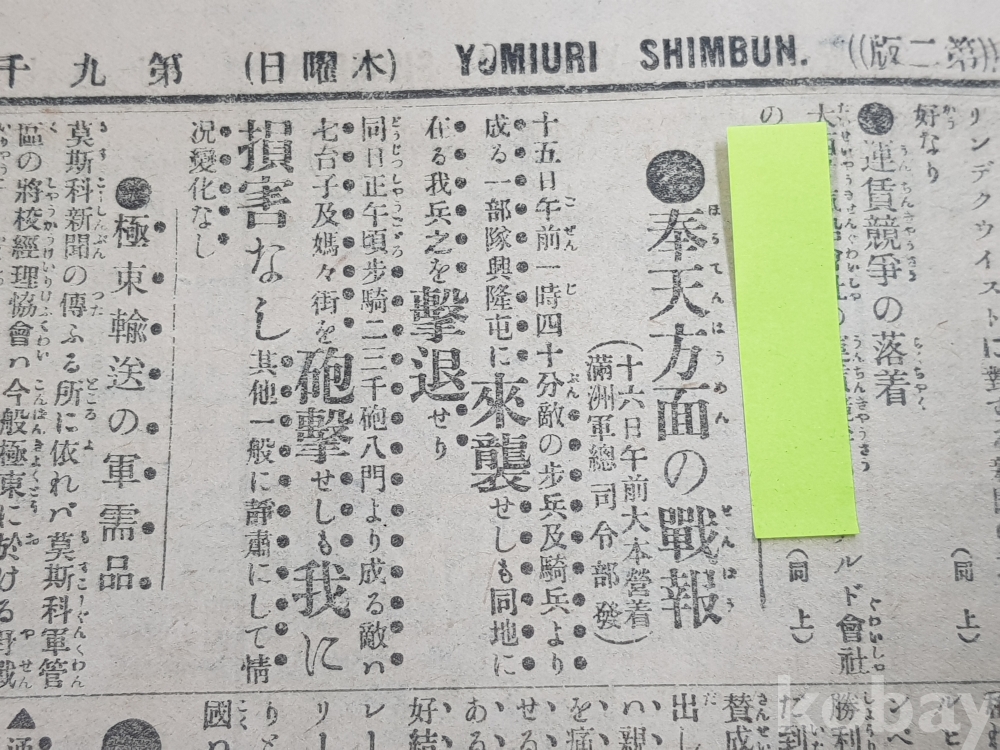 ((第二版)) YOMIURI SHIMBUN. (木曜日) 第九千
リンデクウイスト
好なり
(同上)
●運賃競爭の落着
ルド會社
の
(同上)
●奉天方面の戰報
(十六日午前大本營着
滿洲軍總司令部發)
十五日午前一時四十分敵の步兵及騎兵より
成る一部隊興隆屯に來襲せしも同地に
在る我兵之を擊退せり
同日正午頃步騎二三千砲八門より成る敵ハ
七台子及媽々街を砲擊せしも我に
損害なし其他一般に靜肅にして情
況變化なし
●極東輸送の軍需品
莫斯科新聞の傳ふる所に依れバ莫斯科軍管
區の將校經理協會ハ今般極東に於ける野戰
勝利
だ到
賛成
出し
ハ親
を痛
せる
ある
好結
レー
リー
りと
國ハ
kobay